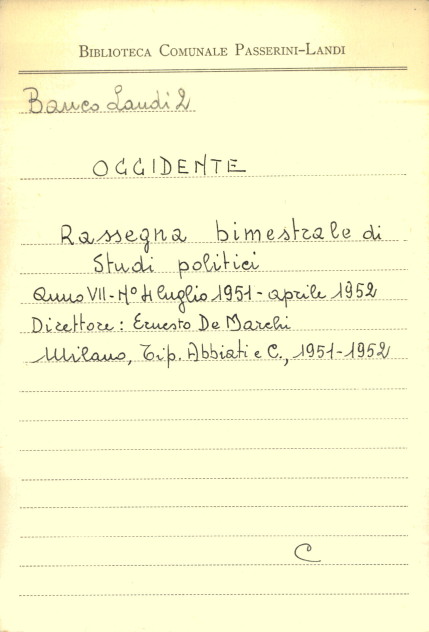 BIBLIOTECA COMUNALE PASSERINI-LANDI
Banco Landi 2
OCCIDENTE
Rassegna bimestrale di
Studi politici
Anno VII - N° 4 luglio 1951 - aprile 1952
Direttore: Ernesto De Marchi
Milano, Tip. Abbiati e C., 1951-1952
C